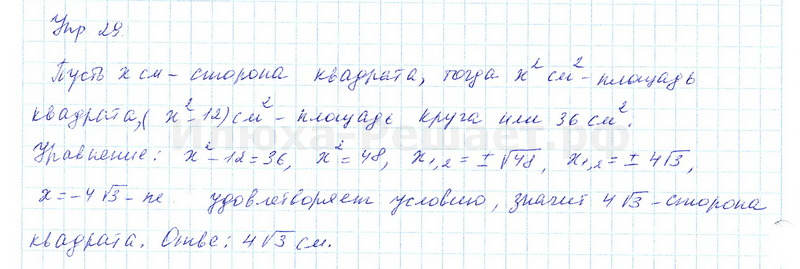 Упр 29
Пусть x см - сторона квадрата, тогда x² см² - площадь
квадрата, (x² - 12) см² - площадь круга или 36 см².
Уравнение: x² - 12 = 36, x² = 48, x₁,₂ = ± √48, x₁,₂ = ± 4√3,
x = -4√3 - не удовлетворяет условию, значит 4√3 - сторона
квадрата. Ответ: 4√3 см.
илюха-решает.рф